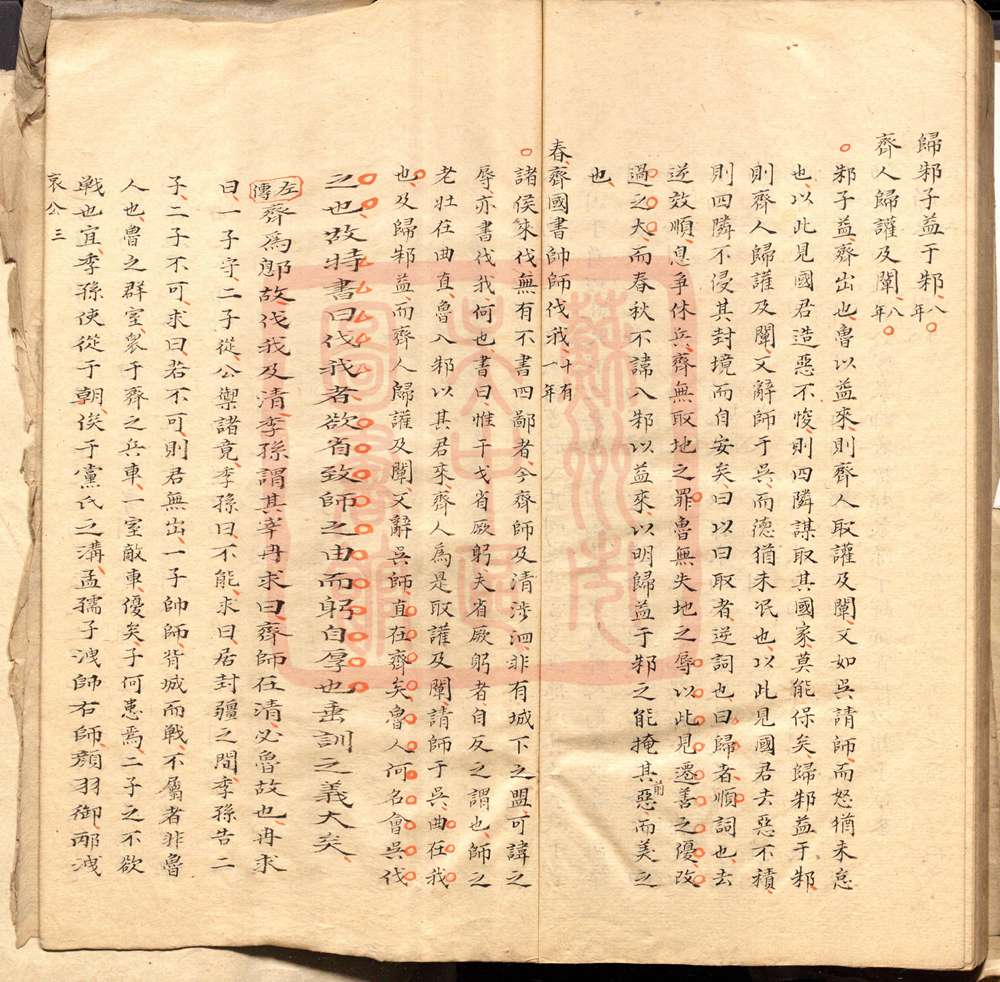 歸邾子益于邾八年
齊人歸讙及闡八年
邾子益齊出也魯以益來則齊人取讙及闡又如吳請師而怒猶未怠
也以此見國君造惡不悛則四隣謀取其國家莫能保矣歸邾益于邾
則齊人歸讙及闡又辭師于吳而德猶未泯也以此見國君去惡不積
則四隣不侵其封境而自安矣曰以曰取者逆詞也曰歸者順詞也去
逆效順息爭休兵齊無取地之罪魯無失地之辱以此見遷善之優改
過之大而春秋不諱入邾以益來以明歸益于邾之能掩其前惡而美之
也
春齊國書帥師伐我十有一年
諸侯來伐無有不書四鄙者今齊師及清涉泗非有城下之盟可諱之
辱亦書伐我何也書曰惟干戈省厥躬夫省厥躬者自反之謂也師之
老壯在曲直魯入邾以其君來齊人爲是取讙及闡請師于吳曲在我
也及歸邾益而齊人歸讙及闡又辭吳師直在齊矣魯人何名會吳伐
之也故特書曰伐我者欲省致師之由而躬自厚也垂訓之義大矣
左傳齊爲鄎故伐我及清季孫謂其宰冉求曰齊師在清必魯故也冉求
曰一子守二子從公禦諸竟季孫曰不能求曰居封疆之間季孫告二
子二子不可求曰若不可則君無出一子帥師背城而戰不屬者非魯
人也魯之群室衆于齊之兵車一室敵車優矣子何患焉二子之不欲
戰也宜季孫使從于朝俟于黨氏之溝孟孺子洩帥右師顏羽御邴洩
哀公三